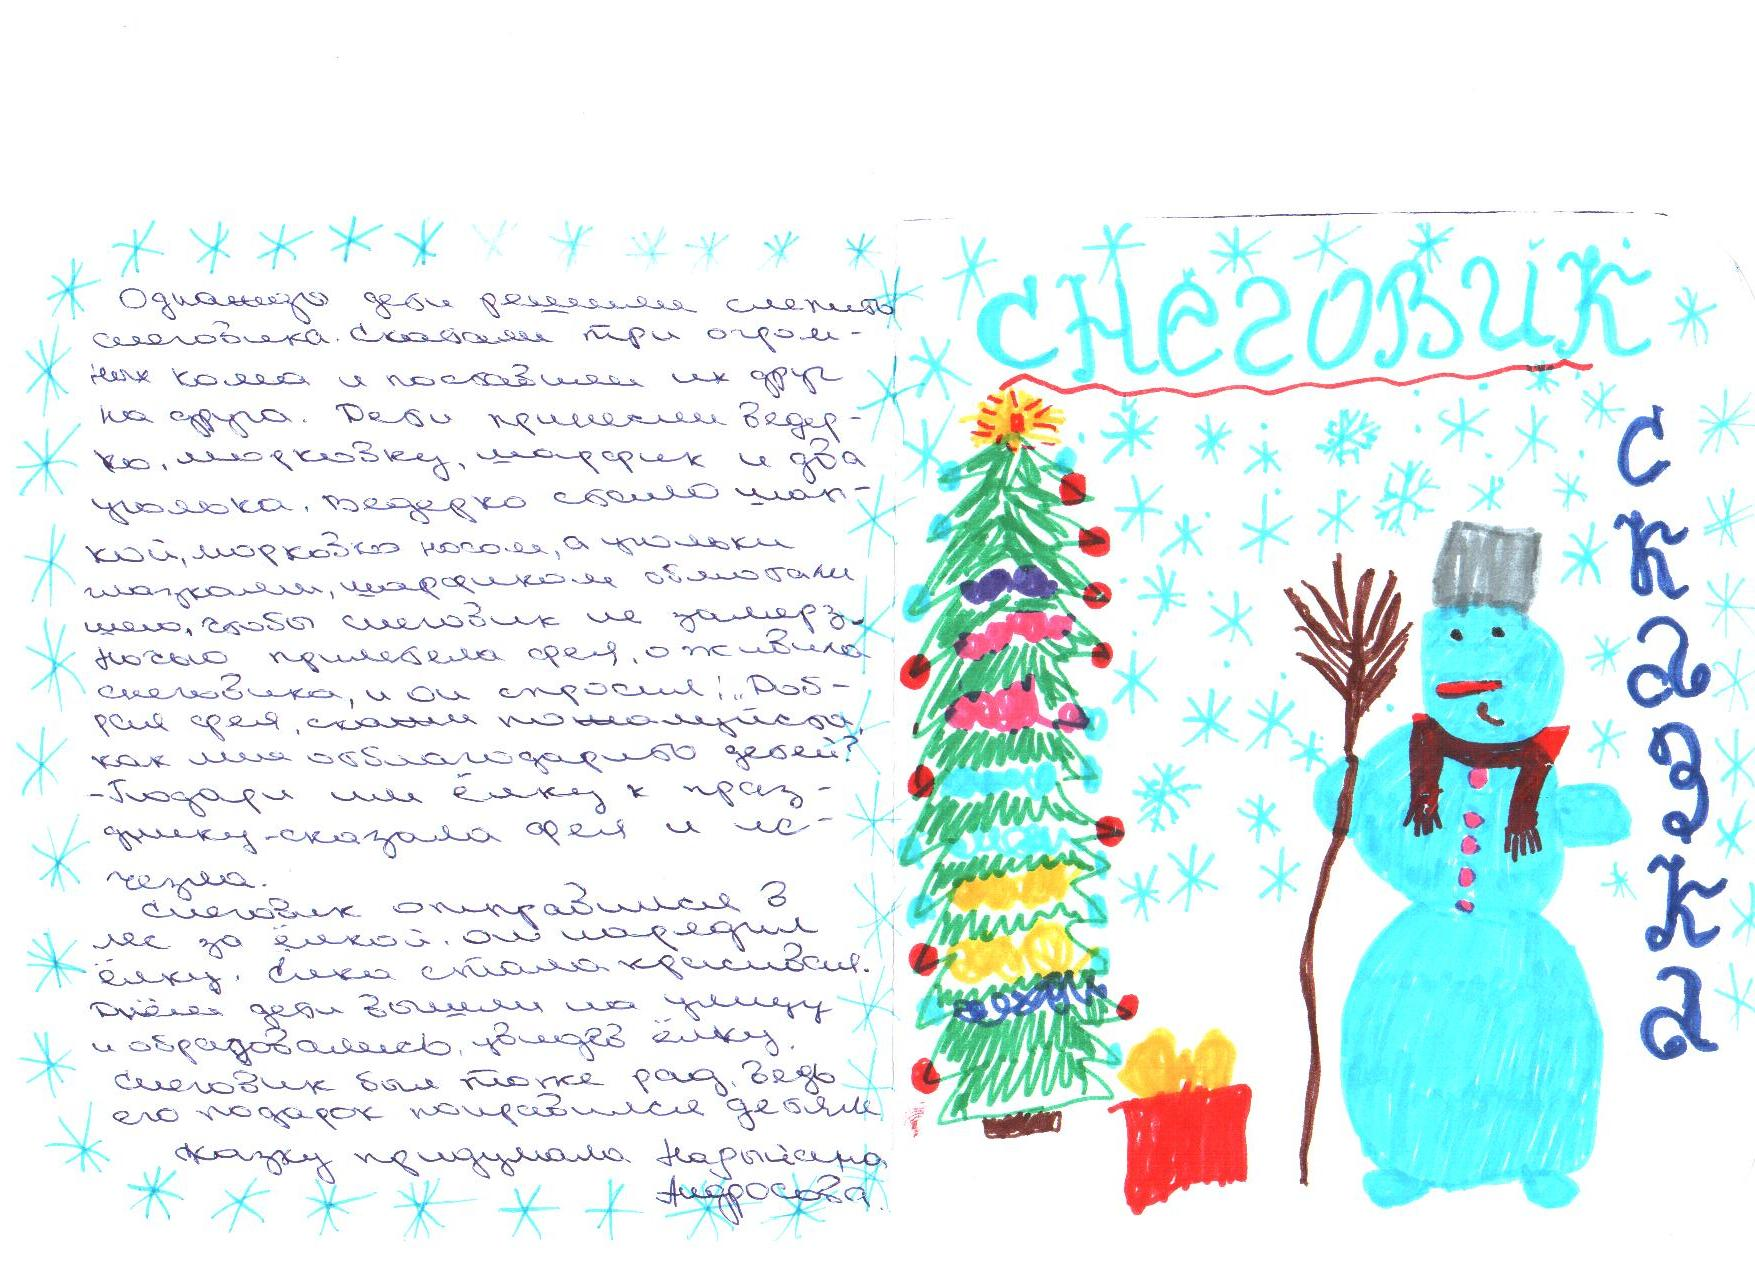 Однажды дети решили слепить
снеговика. Скатали три огром-
ных кома и поставили их друг
на друга. Дети принесли ведер-
ко, морковку, шарфик и два
уголька. Ведерко стало шап-
кой, морковка носом, а угольки
глазками, шарфиком обмотали
шею, чтобы снеговик не замерз.
Ночью прилетела фея, оживила
снеговика, и он спросил: „Доб-
рая фея, скажи пожалуйста,
как мне отблагодарить детей?
-Подари им ёлку к празд-
днику-сказала фея и ис-
чезла.
Снеговик отправился в
лес за ёлкой. Он нарядил
ёлку. Ёлка стала красивая.
Днём дети вышли на улицу
и обрадовались, увидев ёлку.
Снеговик был тоже рад. Ведь
его подарок понравился детям
Сказку придумала
Андросова.
СНЕГОВИК
СКАЗКА